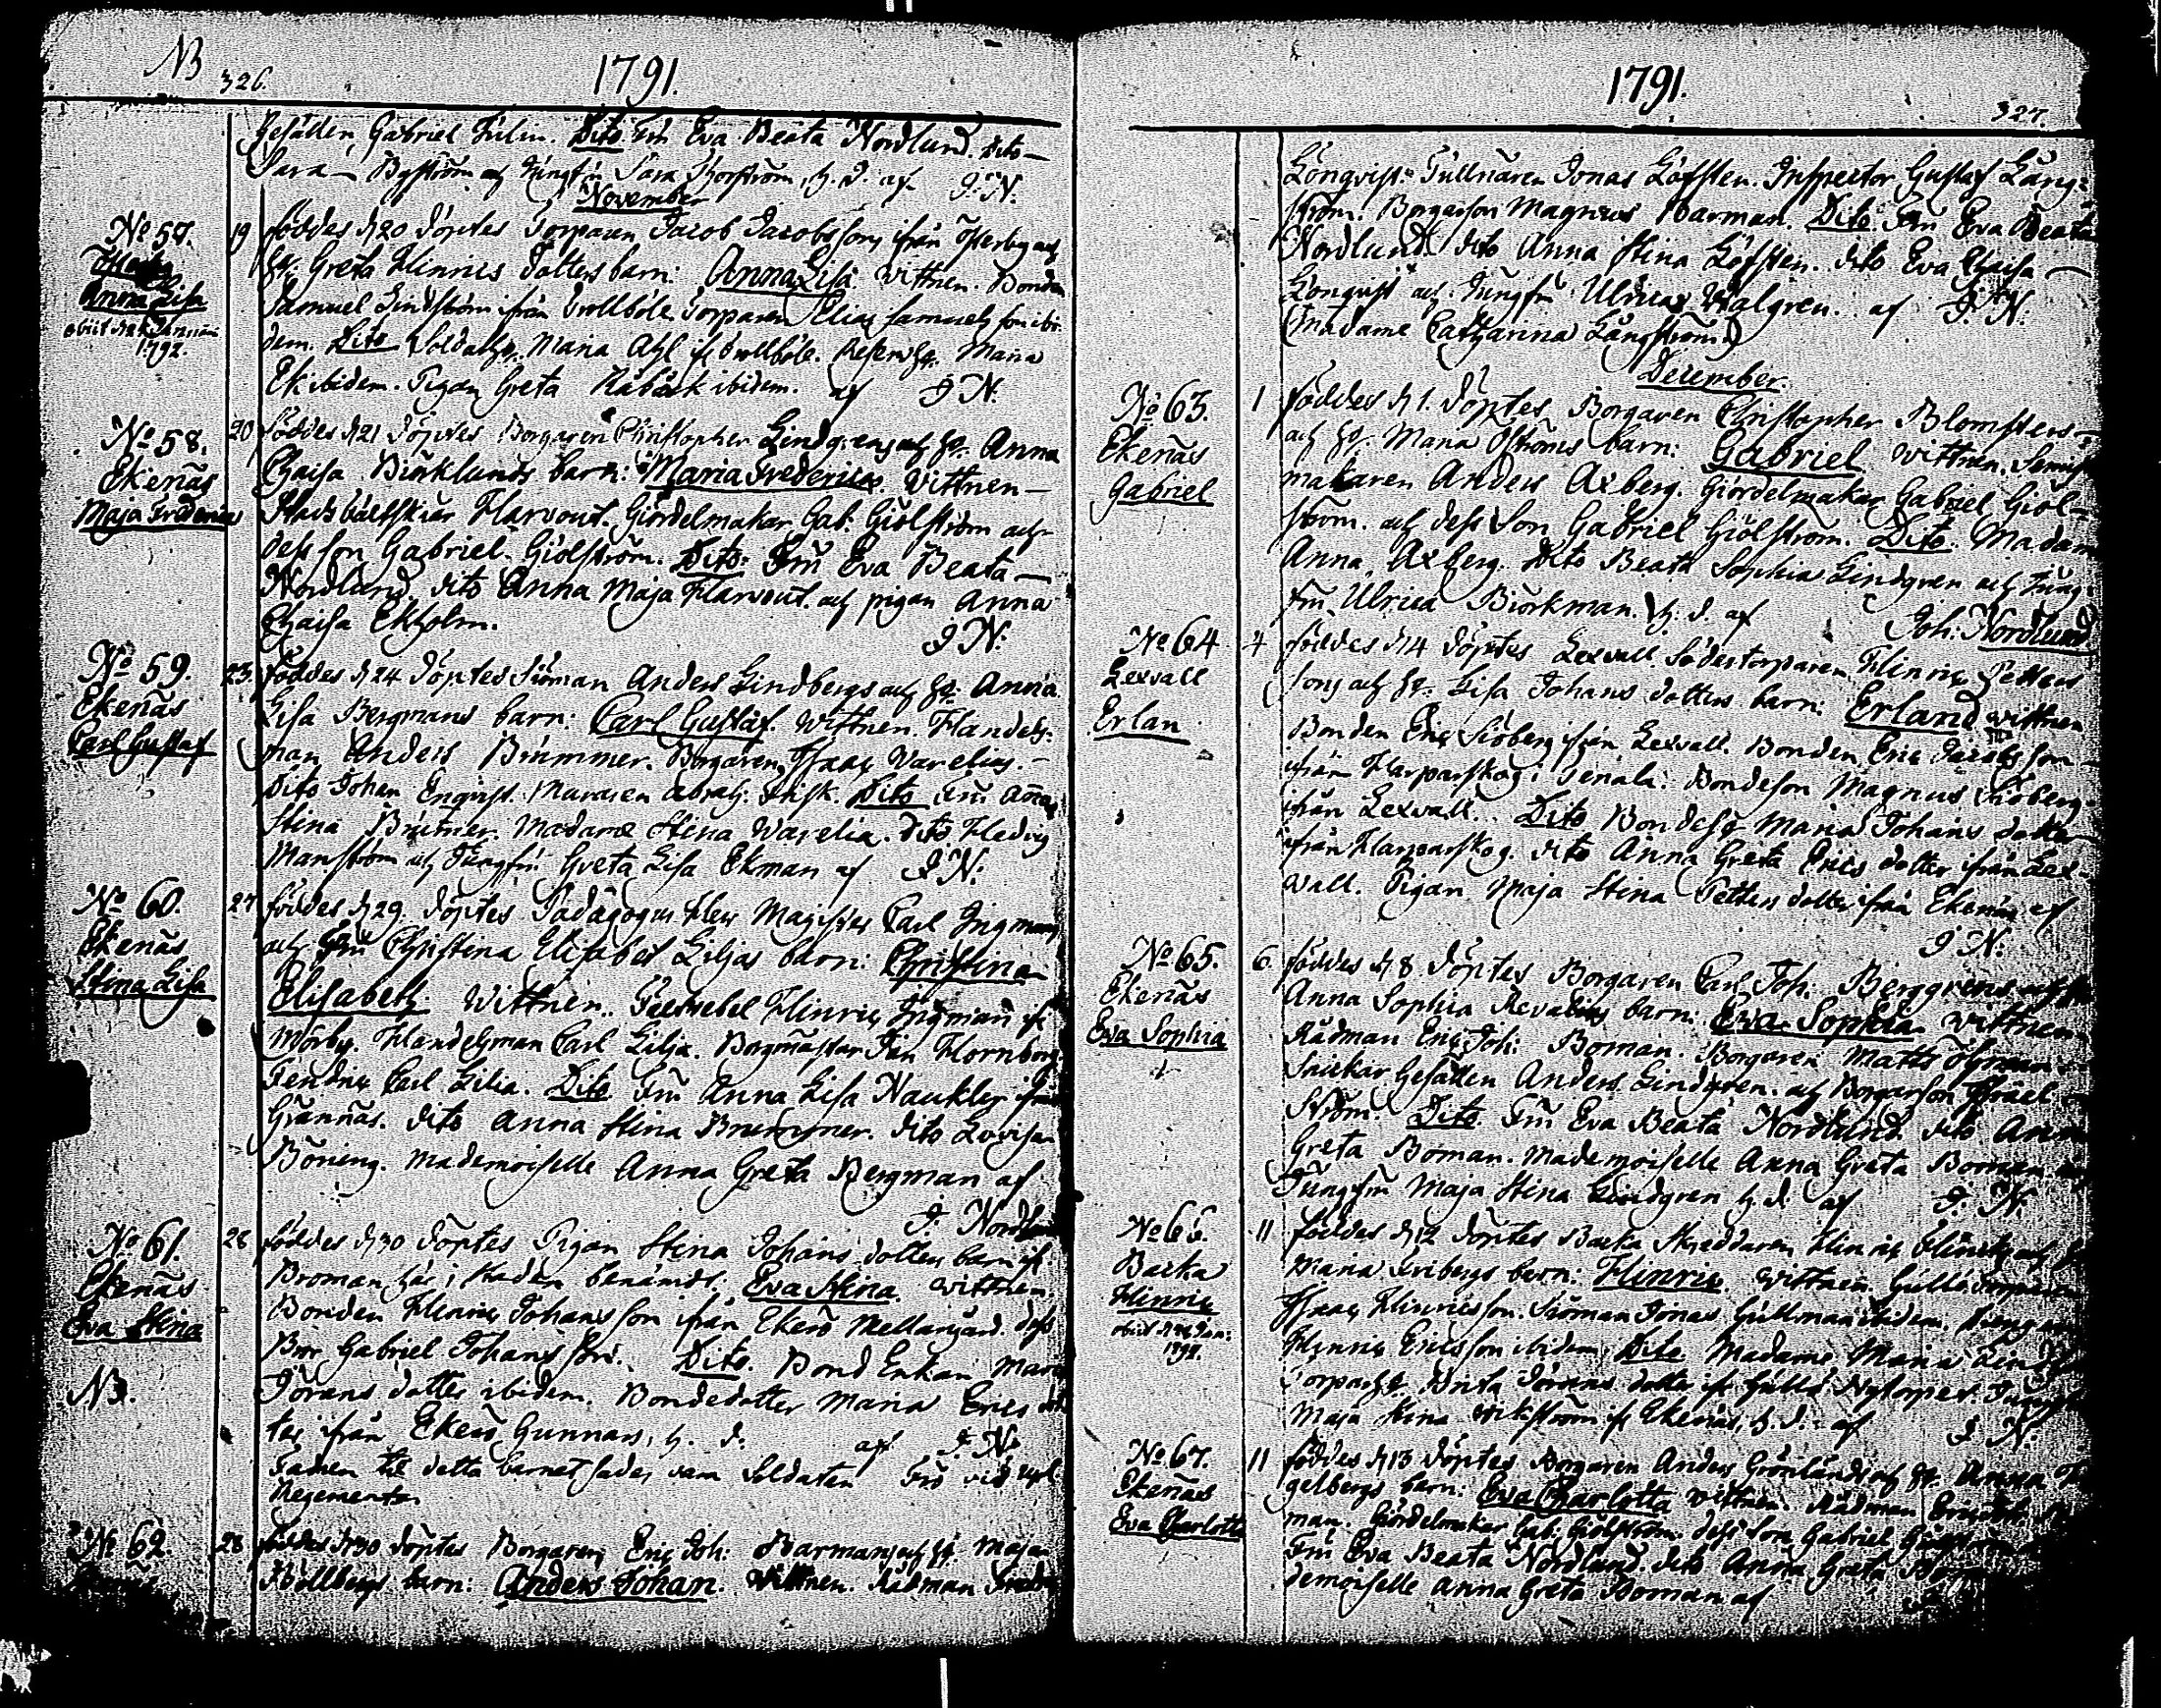 NB
326.
1791.
Gesällen, Gabriel Julin. Dito Fru Eva Beata Nordlund. dito
Sara Byström och Jungfru Sara, h. d. af J. N.
November
No 57.
Anna Lisa
obiit d. Januari
1792.
19 föddes d 20 döptes Torparen Jacob Jacobssons ifrån Österby och
hr. Greta Hinrics dotters barn: Anna Lisa. Wittnen. Bonden
Samuel Lindström ifrån Trollböle. Torparen Elias Samuels son ibi-
dem. Dito Soldatens hr. Maria if Trollböle. Maria
Ek ibidem. Pigan Greta ibidem. af J N.
No 58.
Ekenäs
Maja Frederica
20 föddes d 21 döptes Borgaren Christopher Lindgrens och hr. Anna
Chaisa Biörklunds barn: Maria Frederica Wittnen
Harvout. Giördelmakar Gab: Giölström och
dess son Gabriel Giölström. Dito: Fru Eva Beata
Nordlund, dito Anna Maja Harvout. och pigan Anna
Chaisa Ekholm. J N:
No 59.
Ekenäs
Carl Gustaf
23 föddes d 24 döptes Siöman Anders Lindbergs och hr: Anna
Lisa Bergmans barn: Carl Gustaf. Wittnen. Handels-
man Anders Brummer. Borgaren Isaac Warelius.
dito Johan Enqvist. Dito Fru Anna
Stina Madame Stena Warelia. dito Hedvig
Manström och Jungfru Greta Lisa Ekman af J N:
No 60.
Ekenäs
Stina Lisa
27 föddes d 29. döptes Pädagogus Herr Magister Carl Ingmans
och Fru Christina Elisabet Liljas barn: Christina
Elisabeth. Wittnen. Hinric Ingman if
Mörby. Handelsman Carl Lilja. Borgmästar Jan Hornborg.
Fendric Carl Lilia. Dito Fru Anna Lisa Naukler ifrån
Grännäs. dito Anna Stina Brummer. dito Lovisa
Böning. Mademoiselle Anna Greta Bergman af
J. Nordlund
No 61.
Ekenäs
Eva Stina
NB.
28 föddes d 30 döptes Pigan Stina Johans dotters barn if
Broman här i staden benämdt. Eva Stina. Wittnen.
Bonden Hinric Johans son ifrån Ekerö Mellangård. dess
Bror Gabriel Johans son. Dito. Bond Enkan Maria
Jörans dotter ibidem. Bondedotter Maria Erics dot
ter ifrån Ekerö Gunnars, h. d. af J. N.
Fadren til detta barnet sades vara Soldaten vid
Regementer
No 62.
28 föddes d 30 döptes Borgaren Eric Joh: Barmans och hr. Maja
barn: Anders Johan. Wittnen. Rådman
1791.
327.
Lönqvist. Tullnären Jonas Löfsten. Inspector Gustaf Lång-
ström. Borgarson Magnus Barman. Dito Fru Eva Beata
Nordlund. dito Anna Stina Löfsten. dito Eva Chaisa
Lönqvist och Jungfru Ulrica Walgren. af J. N:
(Madame Catharina Långström.)
December.
No 63.
Ekenäs
Gabriel
1 föddes d 1. döptes Borgaren Christopher Blomsters
och hr. Maria Öströms barn: Gabriel Wittnen.
makaren Anders Axberg. Giördelmakar Gabriel Giöl-
ström. och dess Son Gabriel Giölström. Dito: Madam
Anna Axberg. Dito Beata Sophia Lindgren och Jung
fru Ulrica Biörkman. h. d. af
Joh: Nordlund
No 64
Lexvall
Erlan
4 föddes d 4 döptes Lexvall Södertorparen Hinric Petters
sons och hr. Lisa Johans dotters barn: Erland Wittnen
Bonden Eric Siöberg ifrån Lexvall. Bonden Eric Jacobs son
ifrån Harparskog i Tenala. Bondeson Magnus Siöberg
ifrån Lexvall. Dito Bondehr Maria Johans dotter
ifrån Harparskog. dito Anna Greta Erics dotter ifrån Lex-
vall. Pigan Maja Stina Petters dotter ifrån Ekenäs af
J N:
No 65.
Ekenäs
Eva Sophia
6. föddes d 8 döptes Borgaren Carl Joh: Berggrens och hr
Anna Sophia barn: Eva Sophia Wittnen
Rådman Eric Joh: Boman. Borgaren Matts Öhman.
Snickar Gesällen Anders Lindgren. och Borgarson Israel
Ström. Dito. Fru Eva Beata Nordlund. dito Anna
Greta Boman. Mademoiselle Anna Greta Boman och
Jungfru Maja Stina Lindgren h. d. af J. N.
No 66.
Backa
Hinric
obiit d Jan:
1792.
11 föddes d 12 döptes Backa Skreddaren Hinric och hr
Maria Fribergs barn: Hinric. Wittnen. Torparen
Isaac Hinricsson. Siöman Jonas Gullman ibidem. Drengen
Hinric Ericsson ibidem. Dito Madame Maria
Torparhr. Jörans dotter if Gullö Nytorpet. Jungfru
Maja Stina Wikström if Ekenäs, h. d. af J N.
No 67.
Ekenäs
Eva Charlotta
11 föddes d 13 döptes Borgaren Anders Grönlunds och hr. Anna
gelbergs barn: Eva Charlotta Wittnen. Rådman Eric
man. Giördelmakar Gab: Giölström. dess son Gabriel
Fru Eva Beata Nordlund. dito Anna Greta
demoiselle Anna Greta Boman af